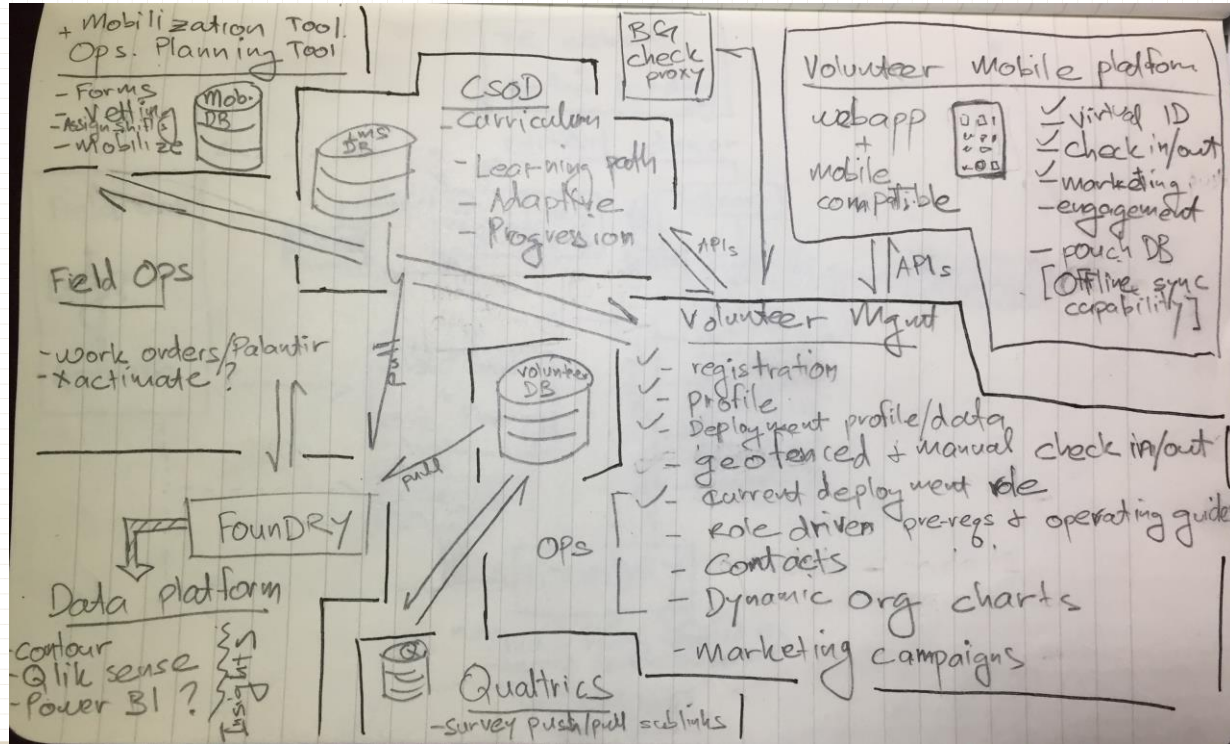 + Mobilization Tool.
Ops. Planning Tool
- Forms
- Vetting
- Assign shifts
- Mobilize
Mob.
DB
LMS
DB
CSOD
- Curriculum
- Learning path
- Adaptive
- Progression
BG
check
proxy
APIs
Volunteer Mobile platform
webapp
+
mobile
compatible
✓ virtual ID
✓ check in/out
✓ marketing
- engagement
- pouch DB
[Offline sync
capability]
APIs
Field Ops
- work orders/Palantir
- Xactimate?
pull
FounDRY
Data platform
- contour
- Qlik sense
- Power BI ?
Insights
Volunteer
DB
OPs
Volunteer Mgmt
✓ - registration
✓ - Profile
✓ - Deployment profile/data
- geofenced + manual check in/out
✓ - current deployment role
Role driven pre-reqs & operating guide
- Contacts
- Dynamic Org charts
- marketing campaigns
Q
Qualtrics
- survey push/pull